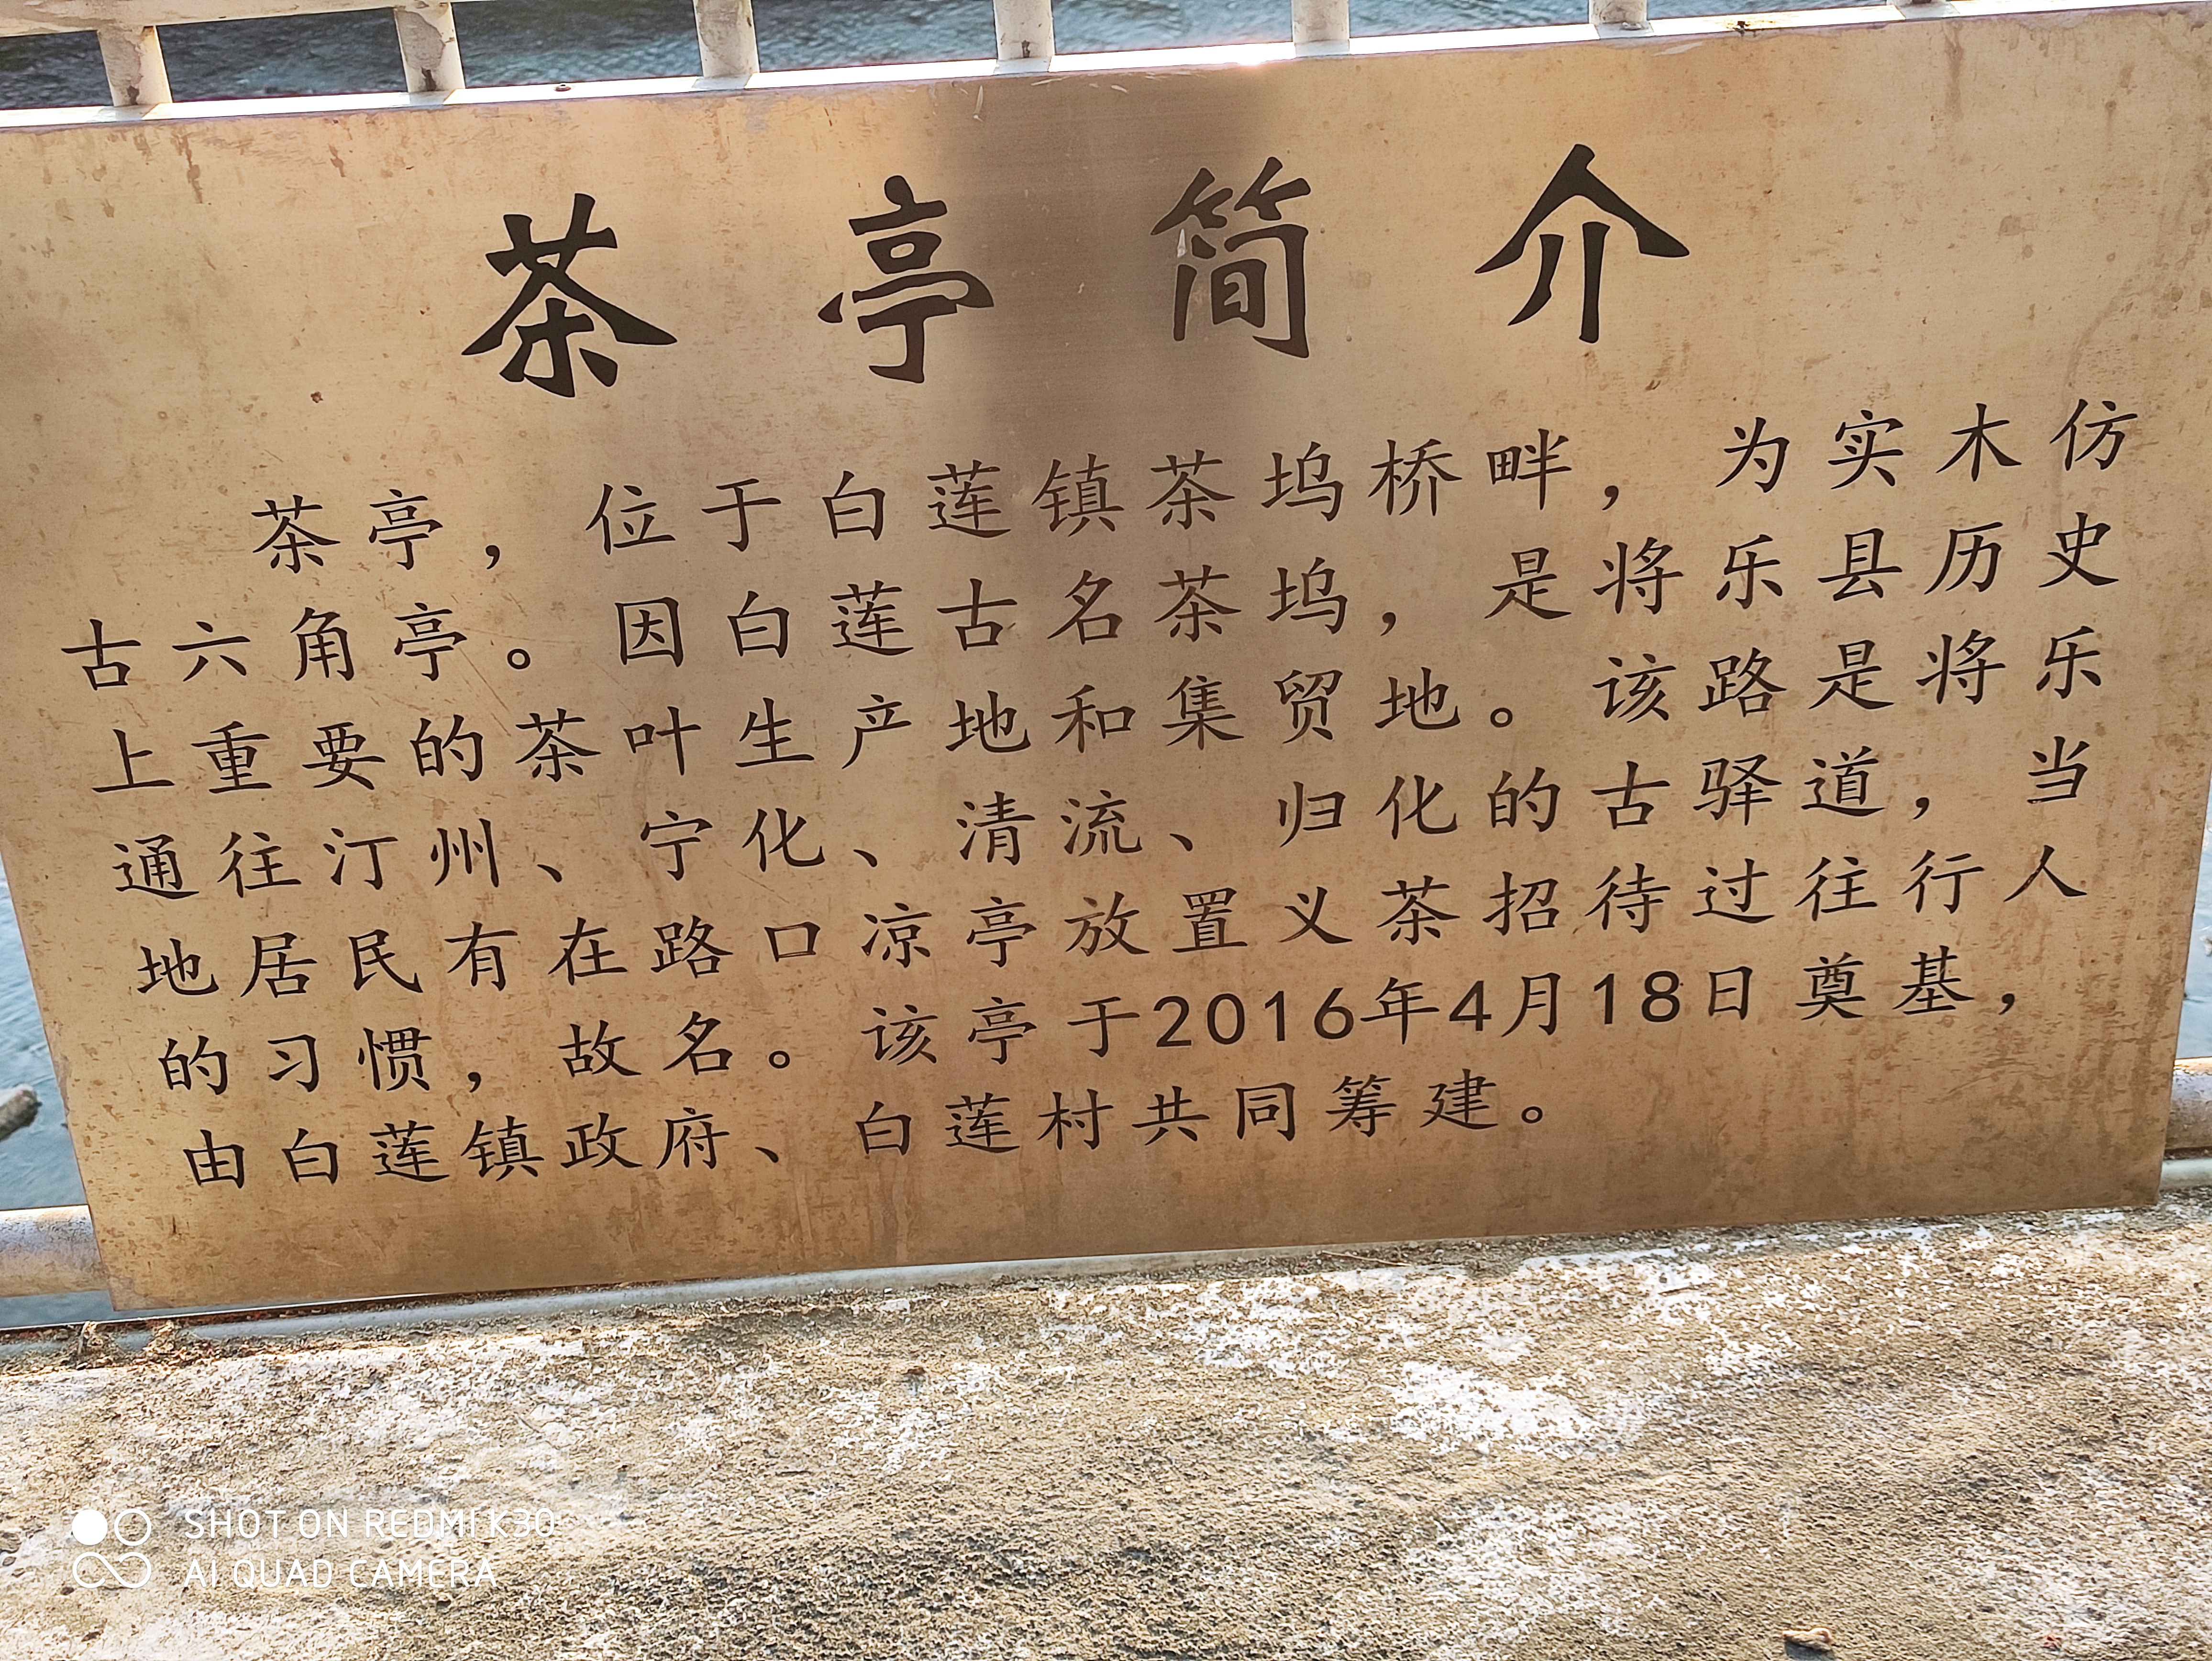 茶亭简介
茶亭，位于白莲镇茶坞桥畔，为实木仿
古六角亭。因白莲古名茶坞，是将乐县历史
上重要的茶叶生产地和集贸地。该路是将乐
通往汀州、宁化、清流、归化的古驿道，当
地居民有在路口凉亭放置义茶招待过往行人
的习惯，故名。该亭于2016年4月18日奠基，
由白莲镇政府、白莲村共同筹建。
SHOT ON REDMI K30
AI QUAD CAMERA